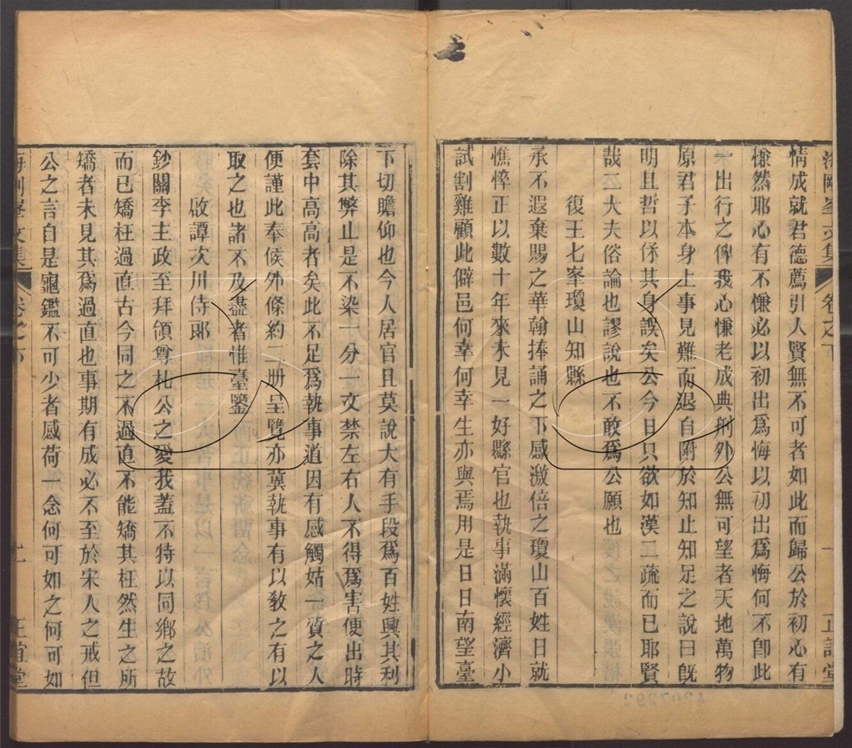 海剛峯文集 卷之下 正誼堂
情成就君德薦引人賢無不可者如此而歸公於初心有
慊然耶心有不慊必以初出爲悔以初出爲悔何不卽此
一出行之俾我心慊老成典刑外公無可望者天地萬物
原君子本身上事見難而退自附於知止知足之說曰旣
明且哲以保其身誤矣公今日只欲如漢二疏而已耶賢
哉二大夫俗論也謬說也不敢爲公願也
復王七峯瓊山知縣
承不遐棄賜之華翰捧誦之下感激倍之瓊山百姓日就
憔悴正以數十年來未見一好縣官也執事滿懷經濟小
試割雞顧此僻邑何幸何幸生亦與焉用是日日南望臺
下切瞻仰也今人居官且莫說大有手段爲百姓興其利
除其弊止是不染一分一文禁左右人不得爲害便出時
套中高高者矣此不足爲執事道因有感觸姑一質之人
便謹此奉候外條約二册呈覽亦冀執事有以敎之有以
取之也諸不及盡者惟臺鑒
啟譚次川侍郎
鈔關李主政至拜領尊札公之愛我蓋不特以同鄉之故
而已矯枉過直古今同之不過直不能矯其枉然生之所
矯者未見其爲過直也事期有成必不至於宋人之戒但
公之言自是龜鑑不可少者感荷一念何可如之何可如
海剛峯文集 卷之下 正誼堂